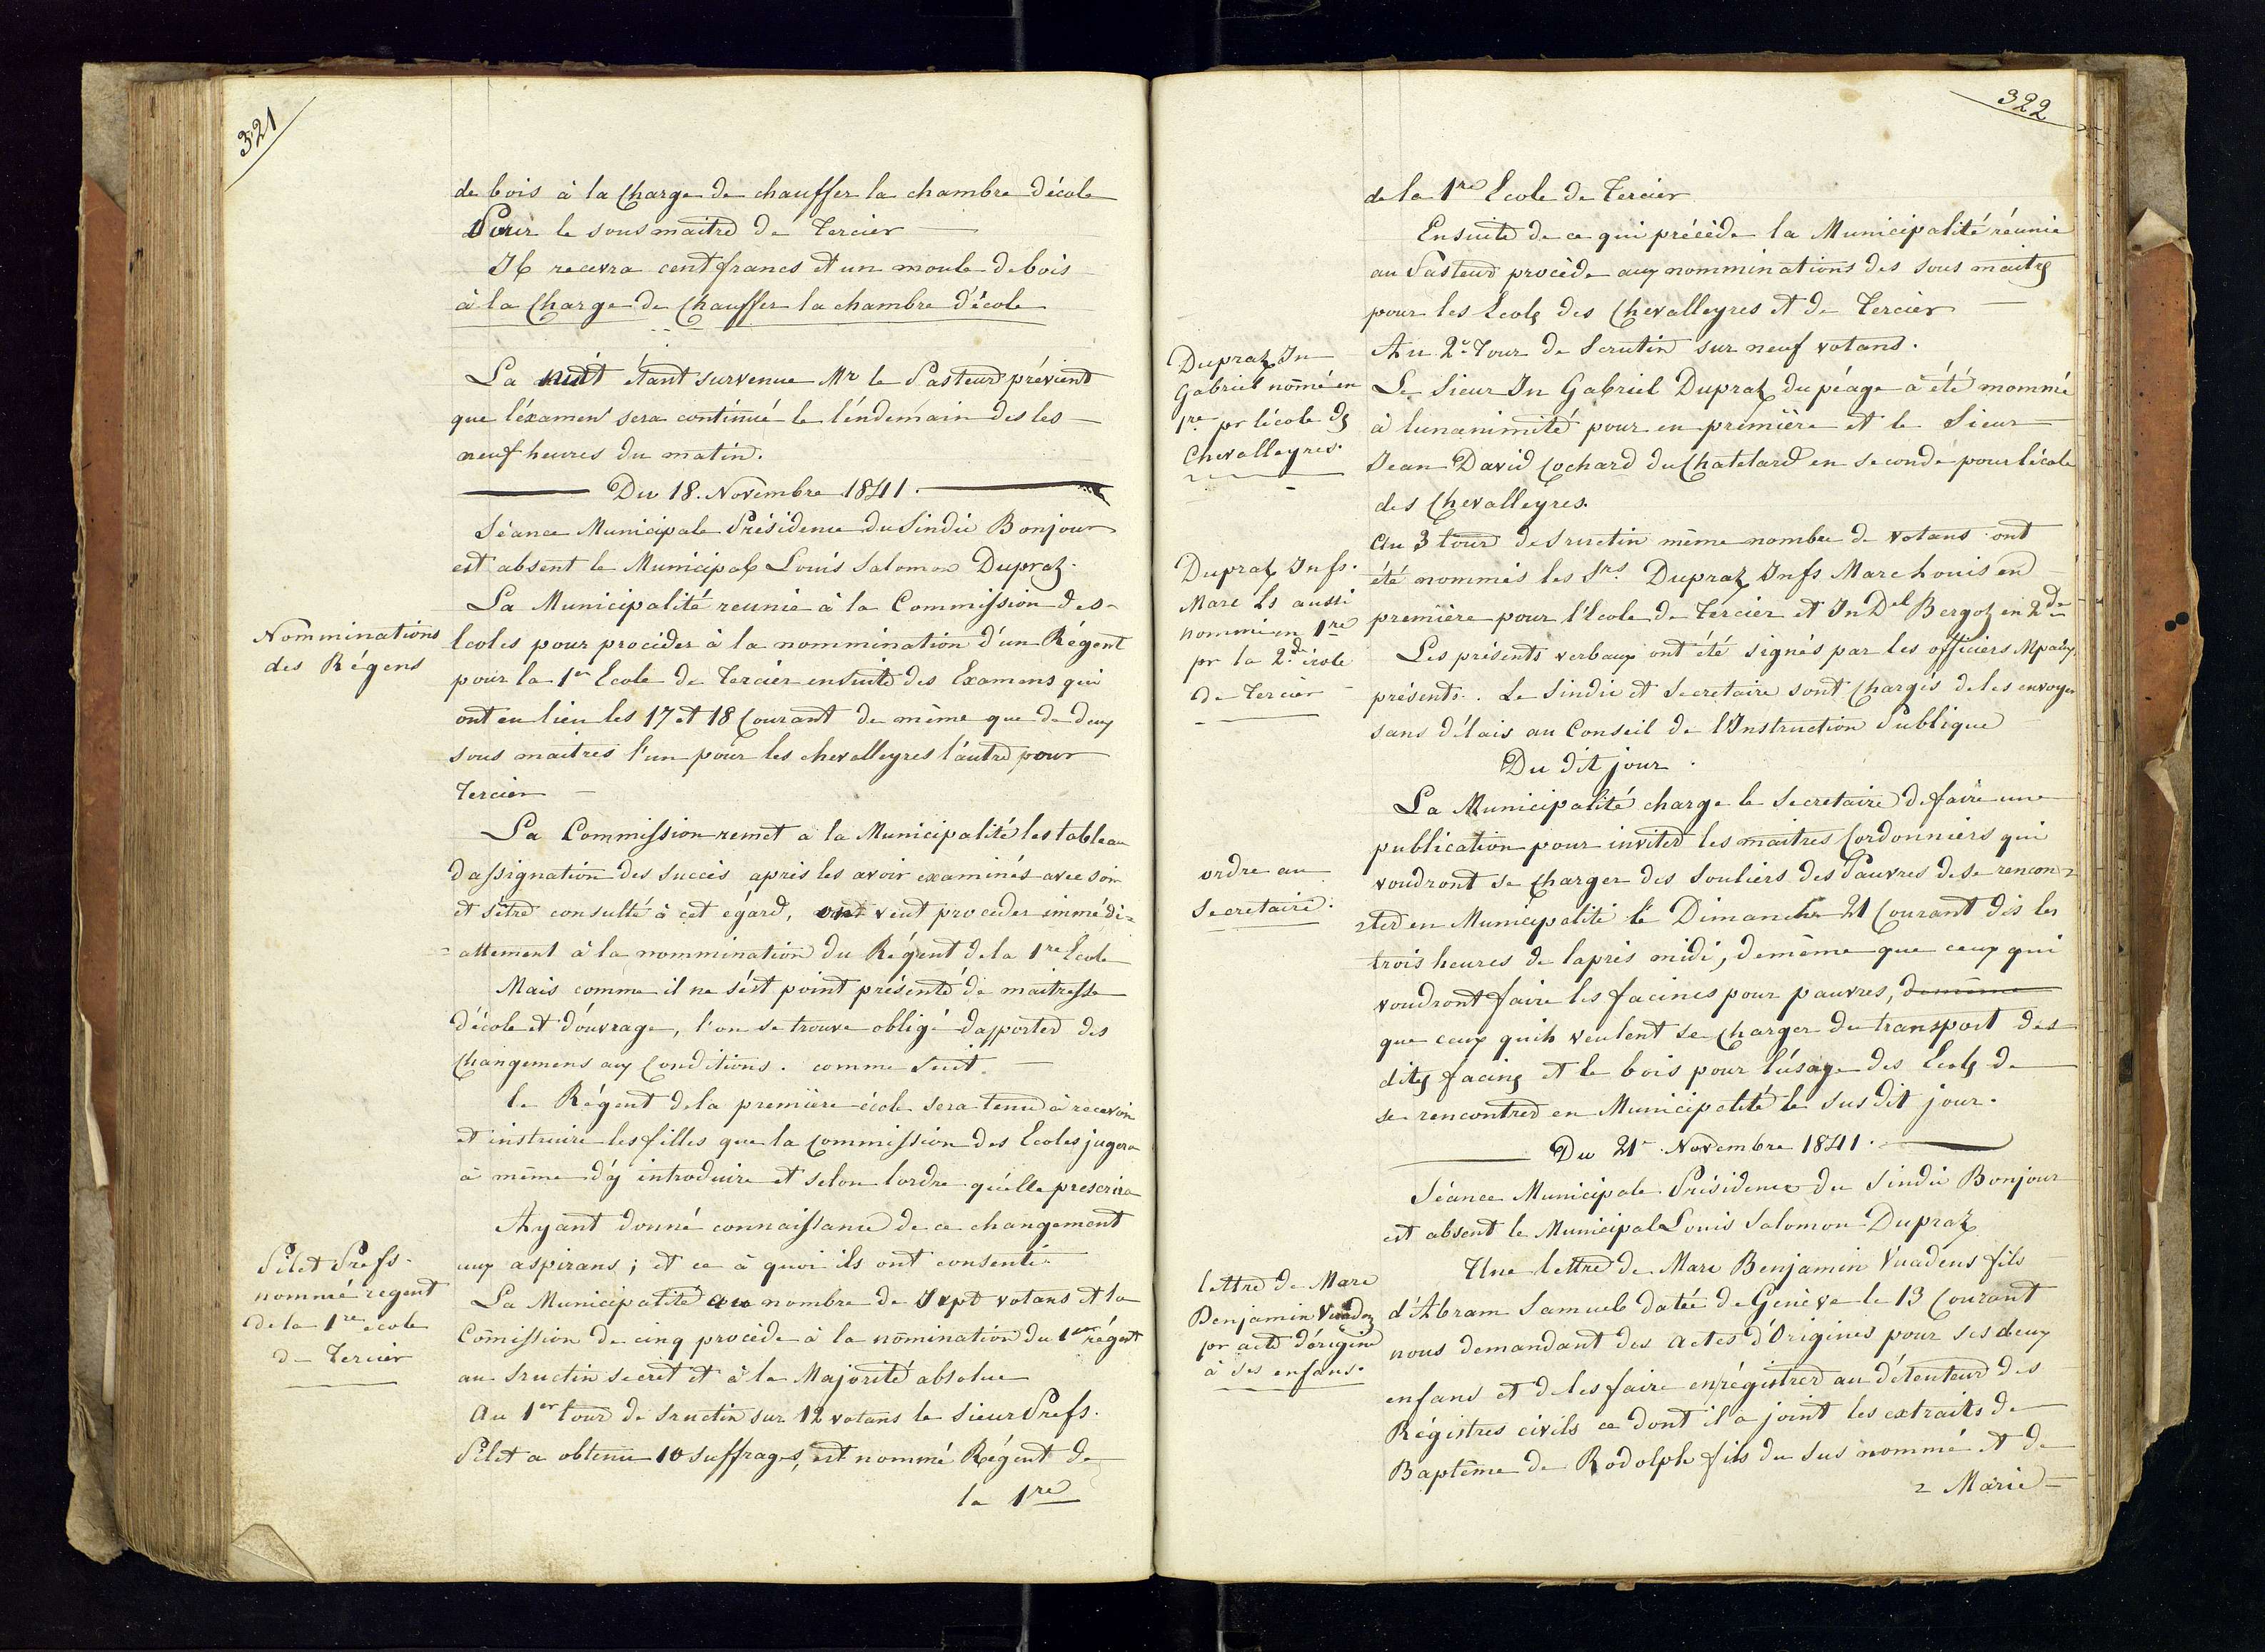 321
de bois à la Charge de chauffer la chambre d'école
Pour le sous maitre de Tercier
Il recevra cent francs et un moule de bois
à la Charge de Chauffer la chambre d'école
La nuit étant survenue Mr le Pasteur prévient
que l'éxamen sera continué le l'endemain des les
neuf heures du matin.
Du 18. Novembre 1841.
Séance Municipale Présidence du Sindic Bonjour
est absent le Municipal Louis Salomon Dupraz.
La Municipalité reunie à la Commission des
Nomminations
des Régens
Ecoles pour procéder à la nommination d'un Régent
pour la 1er Ecole de Tercier ensuite des Examens qui
ont eu lieu les 17 et 18 Courant de même que de deux
sous maitres l'un pour les chevalleyres l'autre pour
Tercier
La Commission remet à la Municipalité les tableau
d'assignation des succès après les avoir examinés avec soin
et s'être consulté à cet égard, ont veut proceder immédi=
=attement à la nommination du Régent de la 1re Ecole
Mais comme il ne s'ést point présenté de maitresse
d'école et d'ouvrage, l'on se trouve obligé dapporter des
Changemens aux Conditions. comme suit.
le Régent de la première école sera tenu à recevoir
et instruire les filles que la Commission des Ecoles jugera
à même d'y introduire et selon lordre qu'elle prescrira
Ayant donné connaissance de ce changement
aux aspirans; et ce à quoi ils ont consenti
Pilet Prefs.
nommé régent
de la 1re école
de Tercier
La Municipalité au nombre de Sept votans et la
Comission de cinq procède à la nomination du 1er régent
au Sructin secret et à la Majorité absolue
Au 1er tour de Sructin sur 12 votans le sieur Prefs.
Pilet a obtenu 10 suffrages, est nommé Régent de
la 1re
322
de la 1re Ecole de Tercier
Ensuite de ce qui précède la Municipalité réunie
au Pasteur procède aux nomminations des sous maitres
pour les Ecoles des Chevalleyres et de Tercier
Dupraz Jn
Gabriel nomé en
1re pr l'école des
Chevalleyres.
Au 2e Tour de Scrutin sur neuf votans.
Le Sieur Jn Gabriel Dupraz du péage à été nommé
à lunanimité pour en première et le Sieur
Jean David Cochard du Chatelard en seconde pour l'école
des Chevalleyres.
Au 3 tour de Sructin même nombre de votans ont
Dupraz Jnfs.
Marc Ls aussi
nommé en 1re
pr la 2de école
de Tercier
été nommés les Srs. Dupraz Jnfs Marc Louis en
première pour l'école de Tercier et Jn Del Bergoz en 2de
Les présents verbaux ont été signés par les officiers Mpaux
présents. Le Sindic et Secretaire sont Chargés de les envoyer
sans délais au Conseil de l'Instruction Publique
Du dit jour.
La Municipalité charge le Secretaire de faire une
publication pour inviter les maitres Cordonniers qui
ordre au
Secretaire.
voudront se Charger des Souliers des Pauvres de se rencon=
=trer en Municipalité le Dimanche 21 Courant dès les
trois heures de laprès midi, demême que ceux qui
voudront faire les facines pour pauvres, demême
que ceux quils veulent se Charger du transport des
dites facines et le bois pour l'usage des Ecoles de
se rencontrer en Municipalité le sus dit jour.
Du 21e Novembre 1841.
Séance Municipale Présidence du Sindic Bonjour
est absent le Municipal Louis Salomon Dupraz
Une lettre de Marc Benjamin Vuadens fils
lettre de Marc
Benjamin Vuadens
pr acte d'origine
à ses enfans.
d'Abram Samuel datée de Genève le 13 Courant
nous demandant des actes d'Origines pour ses deux
enfans et de les faire enrégistrer au détenteur des
Régistres civils ce dont il a joint les extraits de
Baptême de Rodolph fils du sus nommé et de
= Marie =